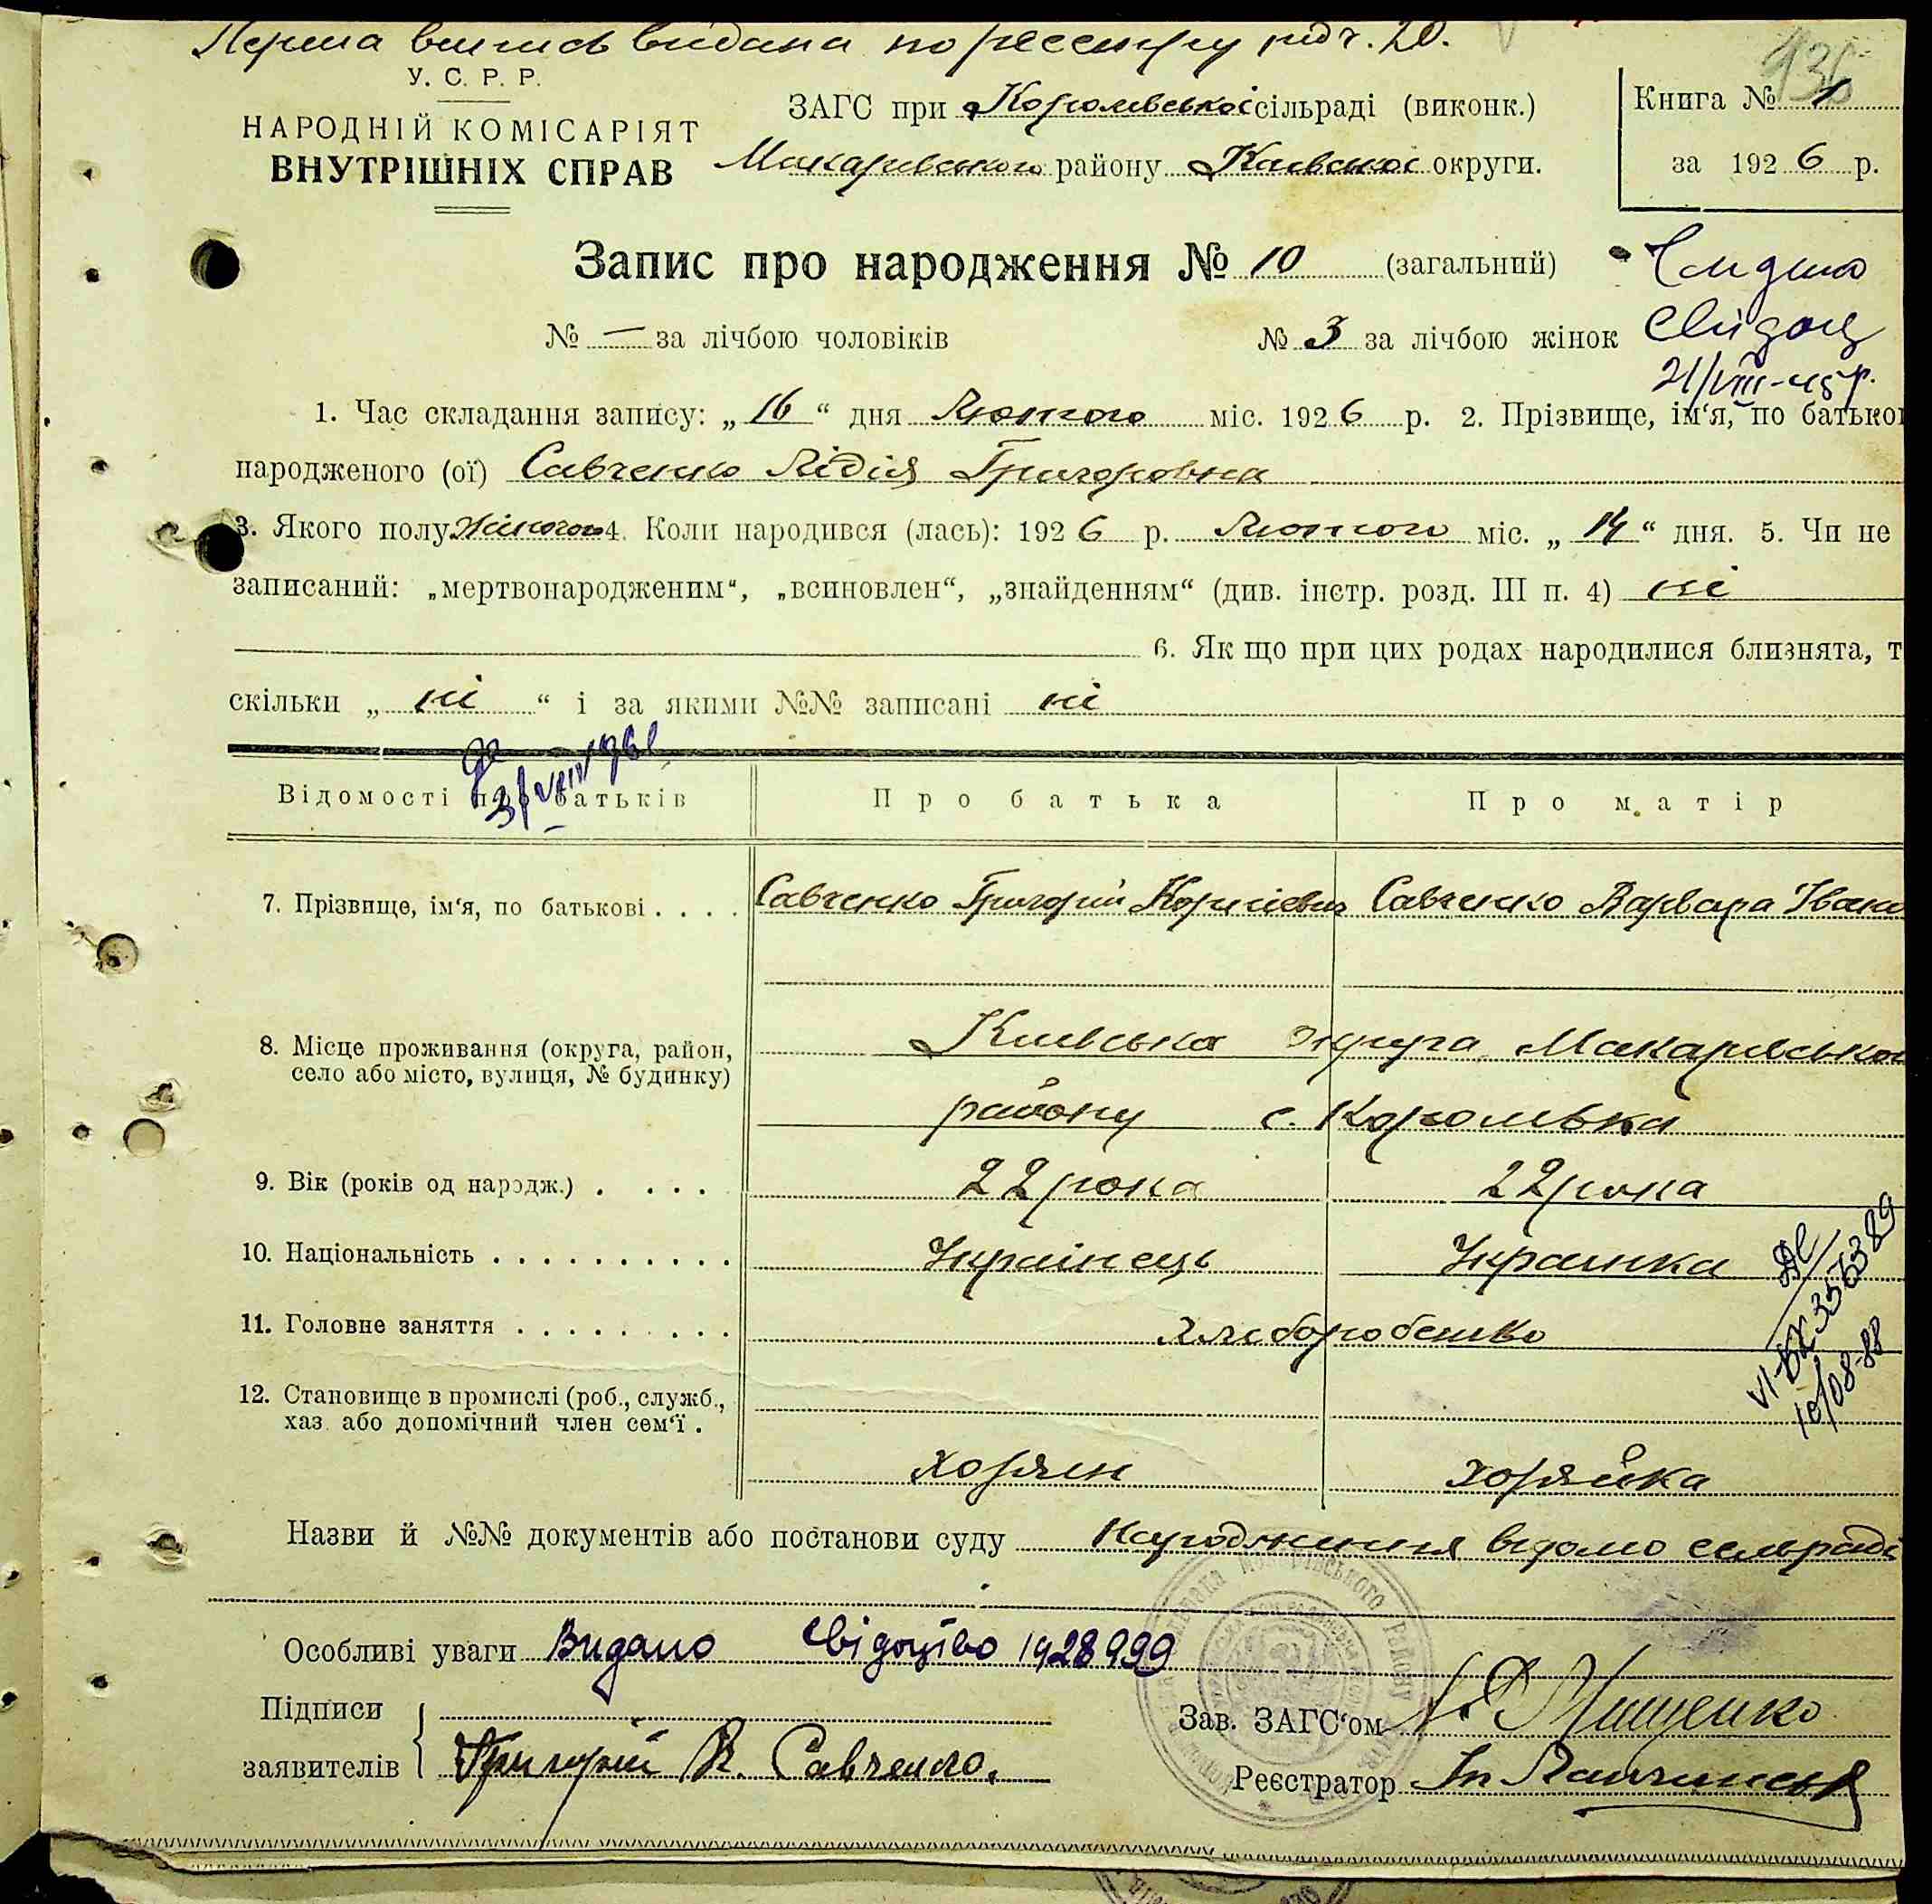 Перша випись видана по реєстру під ч. 20.
У. С. Р. Р.
НАРОДНІЙ КОМІСАРІЯТ
ВНУТРІШНІХ СПРАВ
ЗАГС при Королівській сільраді (виконк.)
Макарівського району Київської округи.
Книга № 1
за 1926 р.
Запис про народження № 10 (загальний)
№ — за лічбою чоловіків
№ 3 за лічбою жінок
21/VIII-45 р.
1. Час складання запису: „16“ дня Лютого міс. 1926 р. 2. Прізвище, ім‘я, по батько
народженого (ої) Савченко Лідія Григоровна
3. Якого полу Жіночого 4. Коли народився (лась): 1926 р. Лютого міс. „14“ дня. 5. Чи не
записаний: „мертвонародженим“, „всиновлен“, „знайденням“ (див. інстр. розд. III п. 4) ні
6. Як що при цих родах народилися близнята, т
скільки „ ні “ і за якими №№ записані ні
Відомості про батьків
Про батька
Про матір
7. Прізвище, ім‘я, по батькові . . . .
Савченко Григорій Корнієвич
Савченко Варвара Івано
8. Місце проживання (округа, район,
село або місто, вулиця, № будинку)
Київська округа Макарівського
району с. Королівка
9. Вік (років од народж.) . . . .
22 рока
22 рока
10. Національність . . . . . . . . . .
Українець
Украинка
11. Головне заняття . . . . . . . . .
хліборобство
12. Становище в промислі (роб., служб.,
хаз. або допомічний член сем‘ї .
хозяин
хозяйка
VI-БК 356389
10/08-88
Назви й №№ документів або постанови суду Народження відомо сельраді
Особливі уваги Видано свідоцтво 1928999
Підписи
заявителів
Григорій К. Савченко.
Зав. ЗАГС‘ом Мищенко
Реєстратор